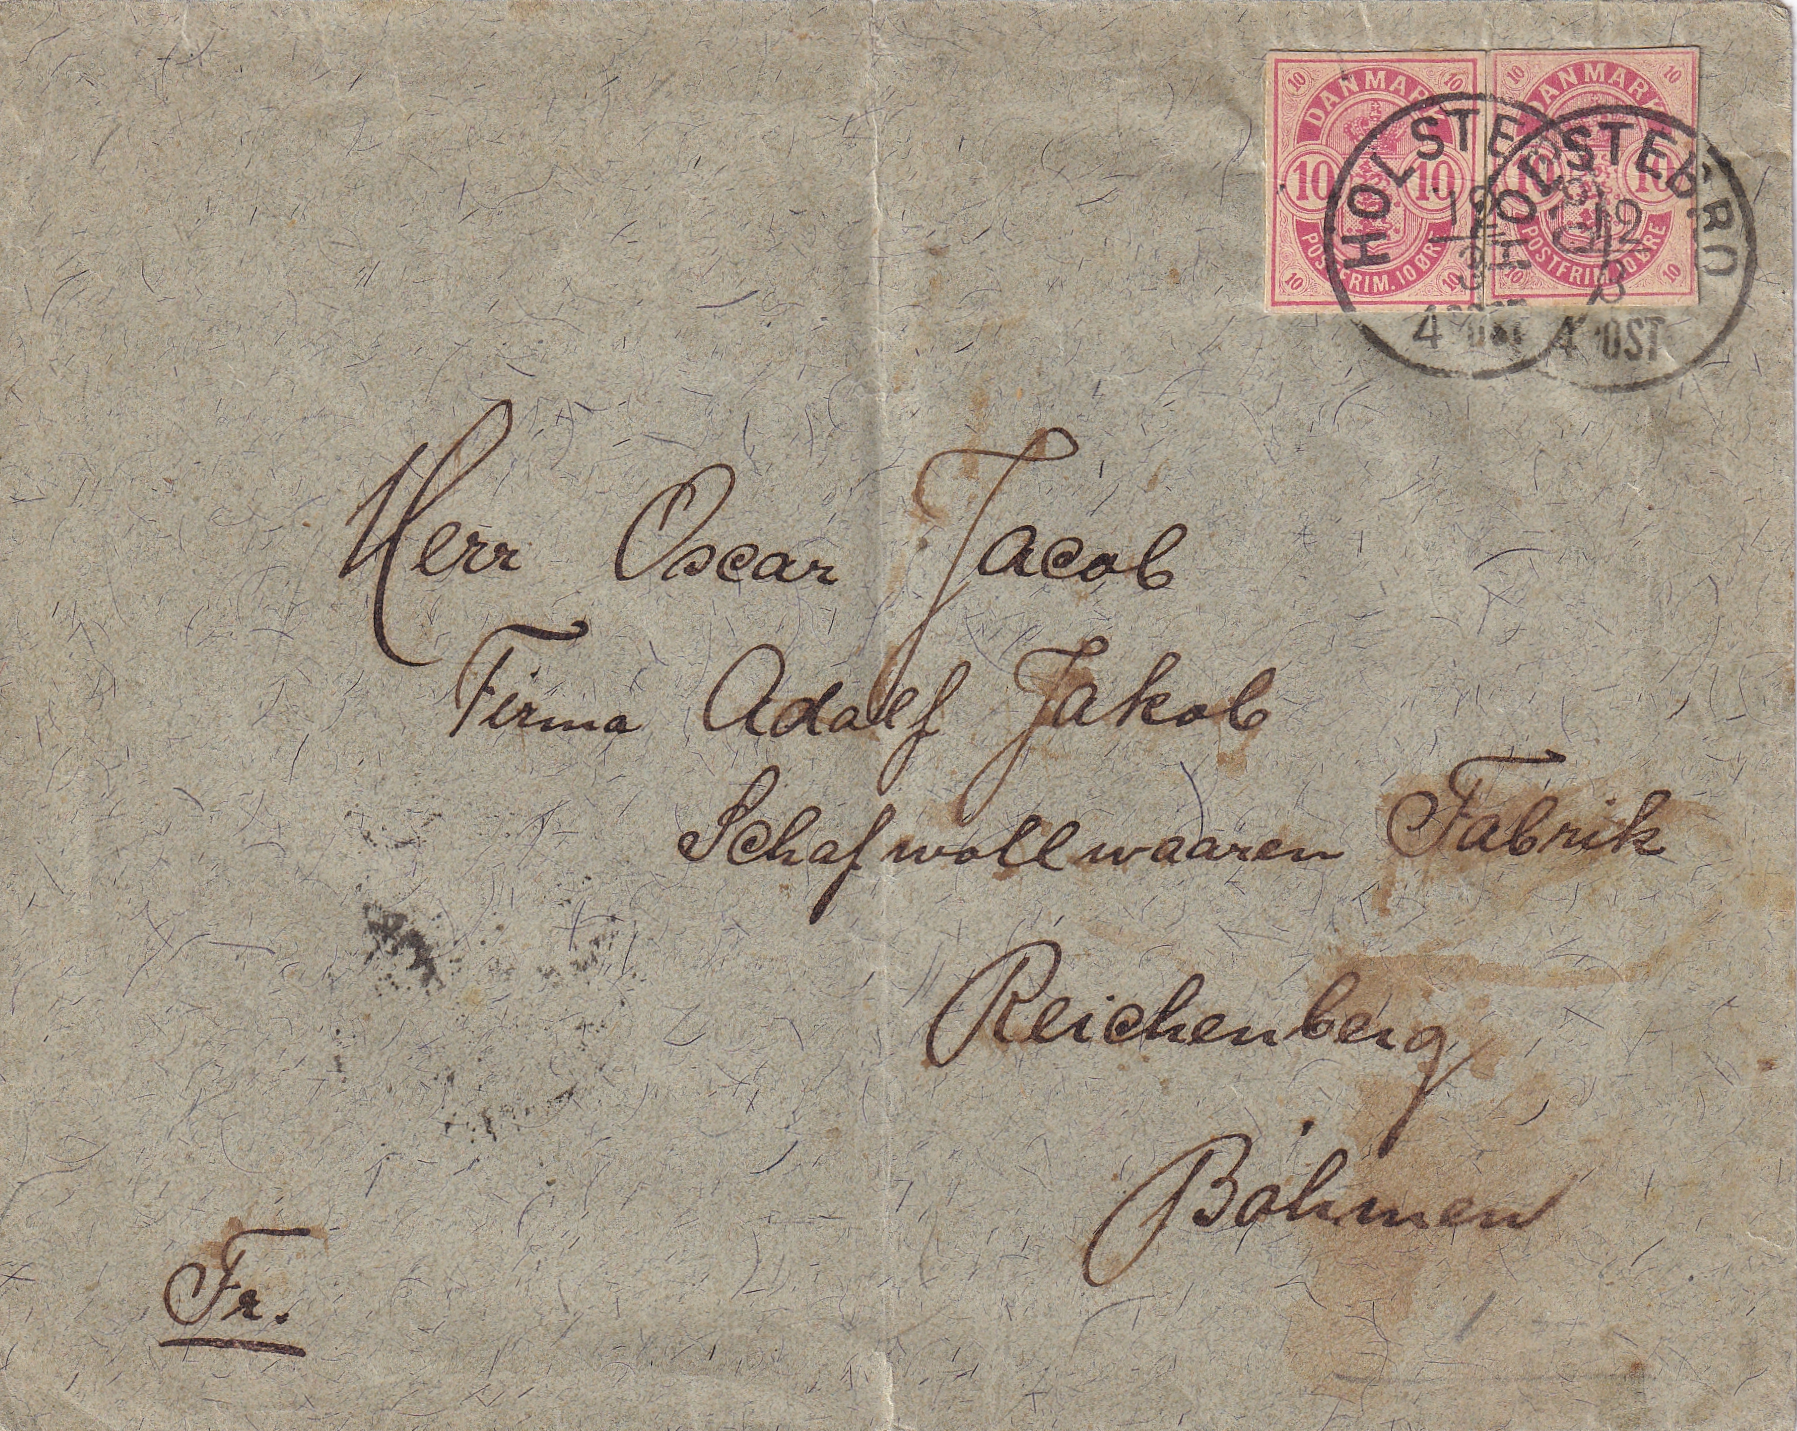 DANMARK
10 10 10 10
10 10
POSTFRIM. 10 ØRE
DANMARK
10 10 10 10
10 10
POSTFRIM. 10 ØRE
HOLSTEBRO
12
3
4 POST
HOLSTEBRO
12
3
4 POST
Herr Oscar Jacob
Firma Adolf Jakob
Schafwollwaaren Fabrik
Reichenberg
Böhmen
Fr.